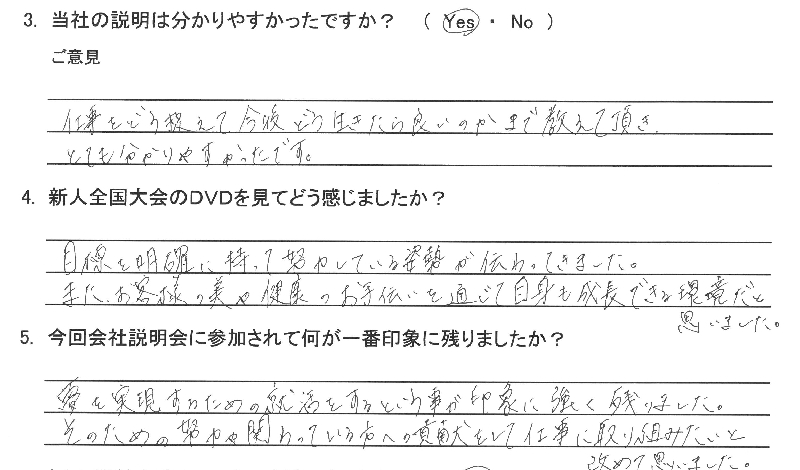 3. 当社の説明は分かりやすかったですか？ （ Yes ・ No ）
ご意見
仕事をどう捉えて今後どう生きたら良いのかまで教えて頂き、
とても分かりやすかったです。
4. 新人全国大会のDVDを見てどう感じましたか？
目標を明確に持って努力している姿勢が伝わってきました。
また、お客様の美や健康のお手伝いを通じて自身も成長できる環境だと
思いました。
5. 今回会社説明会に参加されて何が一番印象に残りましたか？
夢を実現するための就活をするという事が印象に強く残りました。
そのための努力や関わっている方への貢献をして仕事に取り組みたいと
改めて思いました。